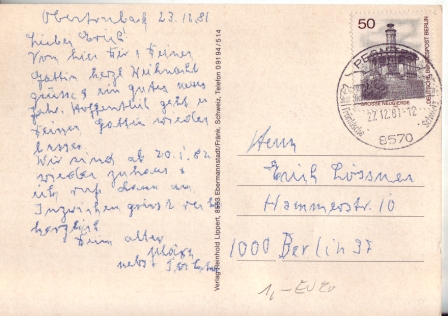 Obertrubach 23.12.81
Lieber Erich!
Von hier Dir & Deiner
Gattin herzl Weihnachts
grüsse & ein gutes neues
Jahr. Hoffentlich geht es
Deiner Gattin wieder
besser.
Wir sind ab 20.1.82
wieder zuhause &
ich ruf dann an
Inzwischen grüsst recht
herzlich
Dein alter
nebst
Verlag Reinhold Lippert, 8553 Ebermannstadt/Fränk. Schweiz, Telefon 09194/514
50
DEUTSCHE BUNDESPOST BERLIN
GROSSE NEUGIERDE
PEGNITZ
Fränkische
22.12.81-12
8570
Herrn
Erich Lössner
Hammerstr. 10
1000 Berlin 37
1,- EURO